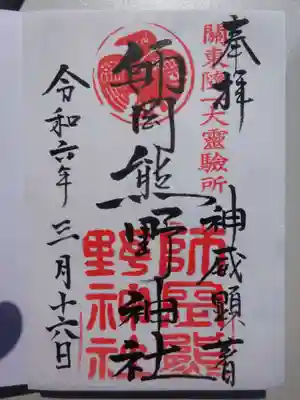 奉拝
關東随一大靈驗所
神威顕著
師岡熊野神社
師岡熊
野神社
令和六年三月十六日